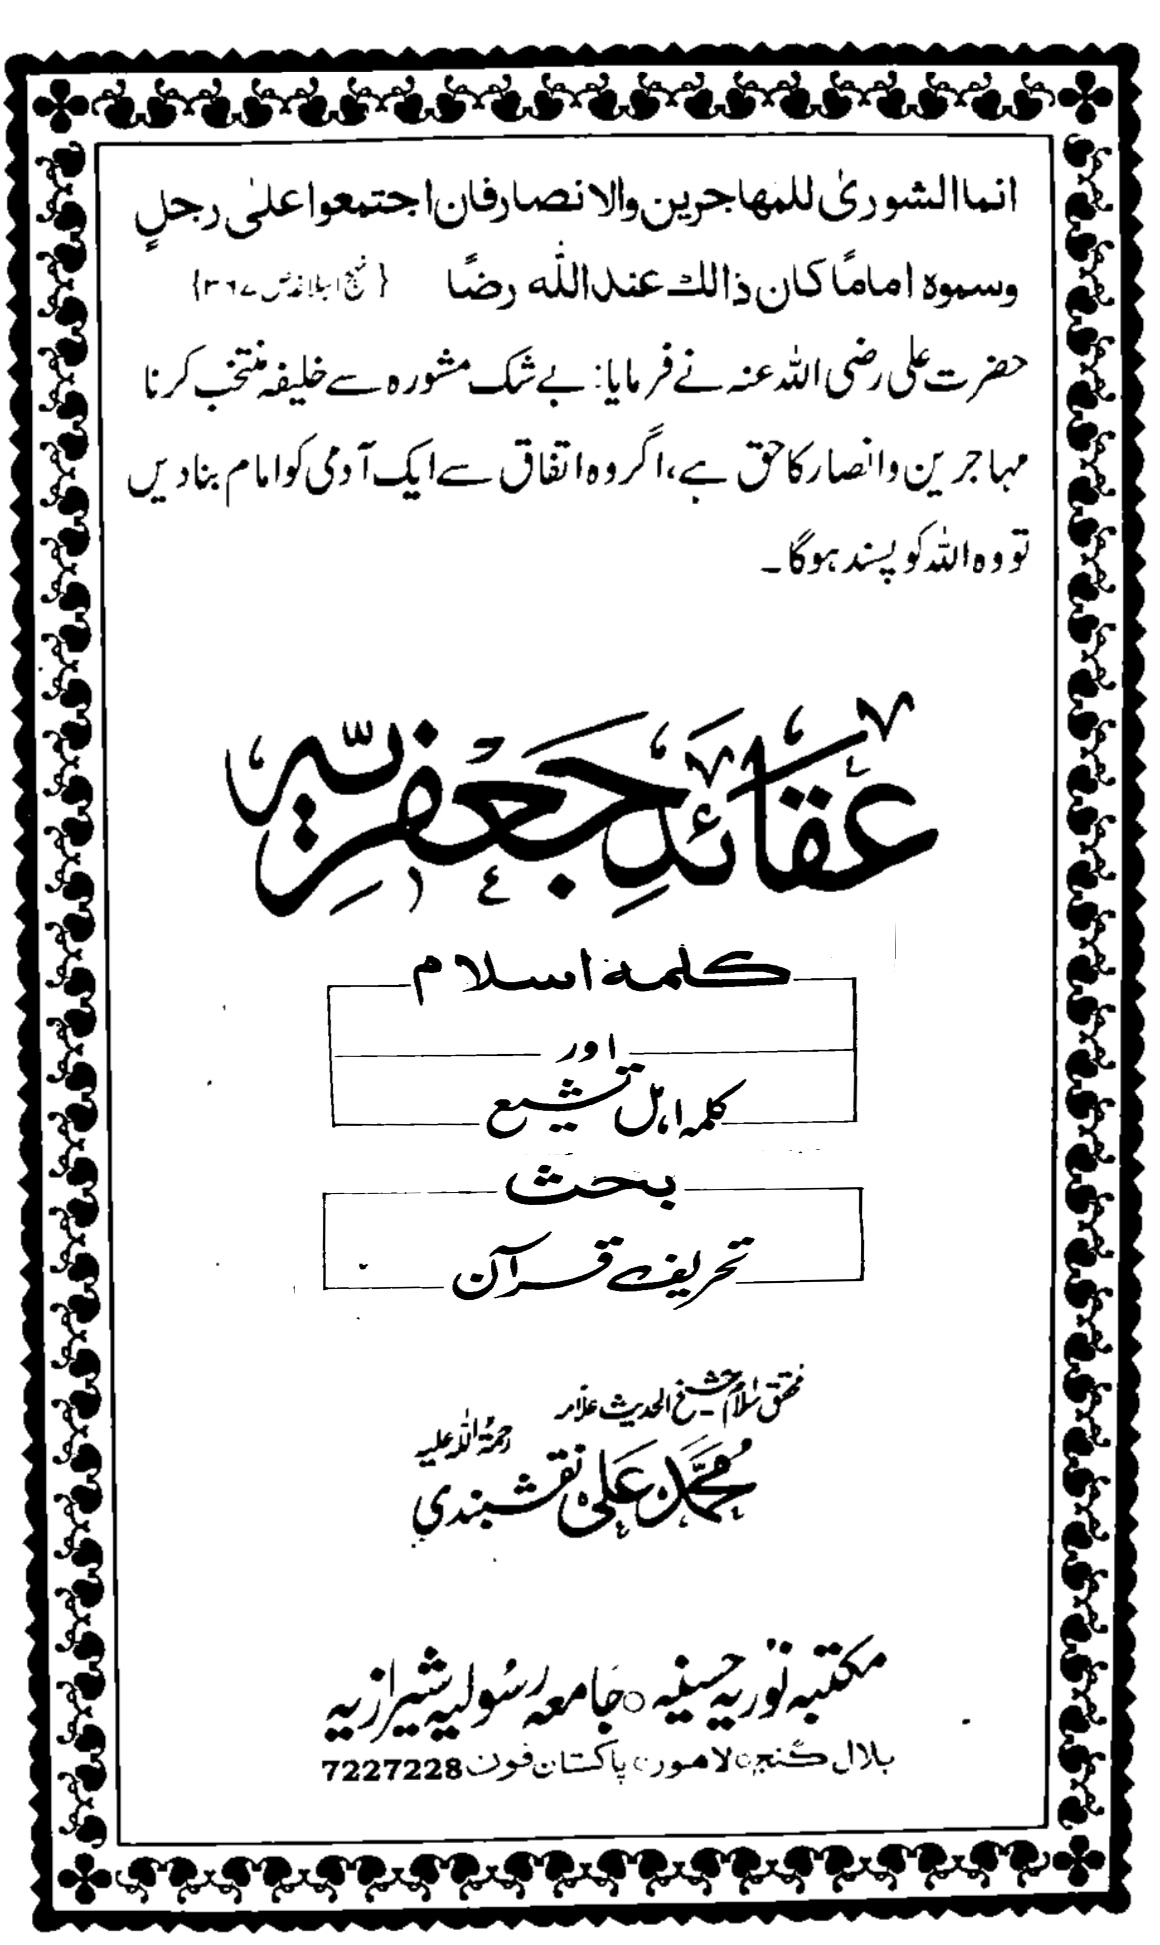 انما الشوریٰ للمهاجرین والانصار فان اجتمعوا علیٰ رجلٍ
وسموه امامًا کان ذالك عند اللّٰه رضًا {نہج البلاغہ ص ۳۶۷}
حضرت علی رضی اللہ عنہ نے فرمایا: بے شک مشورہ سے خلیفہ منتخب کرنا
مہاجرین وانصار کا حق ہے، اگر وہ اتفاق سے ایک آدمی کو امام بنادیں
تو وہ اللہ کو پسند ہوگا۔
عقائدِ جعفریہ
کلمہ اسلام
اور
کلمہ اہل تشیع
بحث
تحریف قرآن
محقق اسلام شیخ الحدیث علامہ
محمد علی نقشبندی رحمۃ اللہ علیہ
مکتبہ نوریہ حسنیہ ○ جامعہ رسولیہ شیرازیہ
بلال گنج ○ لاہور ○ پاکستان فون 7227228